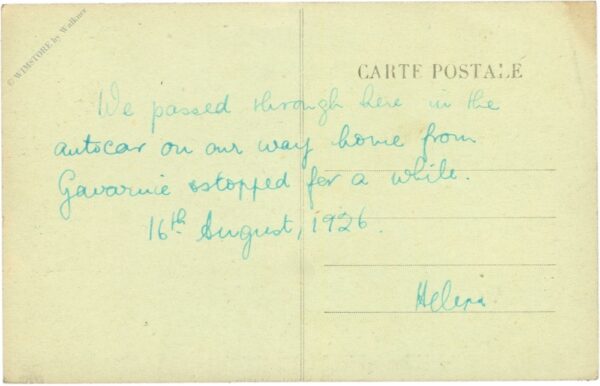 © WIMSTORE by Walkner
CARTE POSTALE
We passed through here in the
autocar on our way home from
Gavarnie & stopped for a while.
16th August, 1926.
Helen.